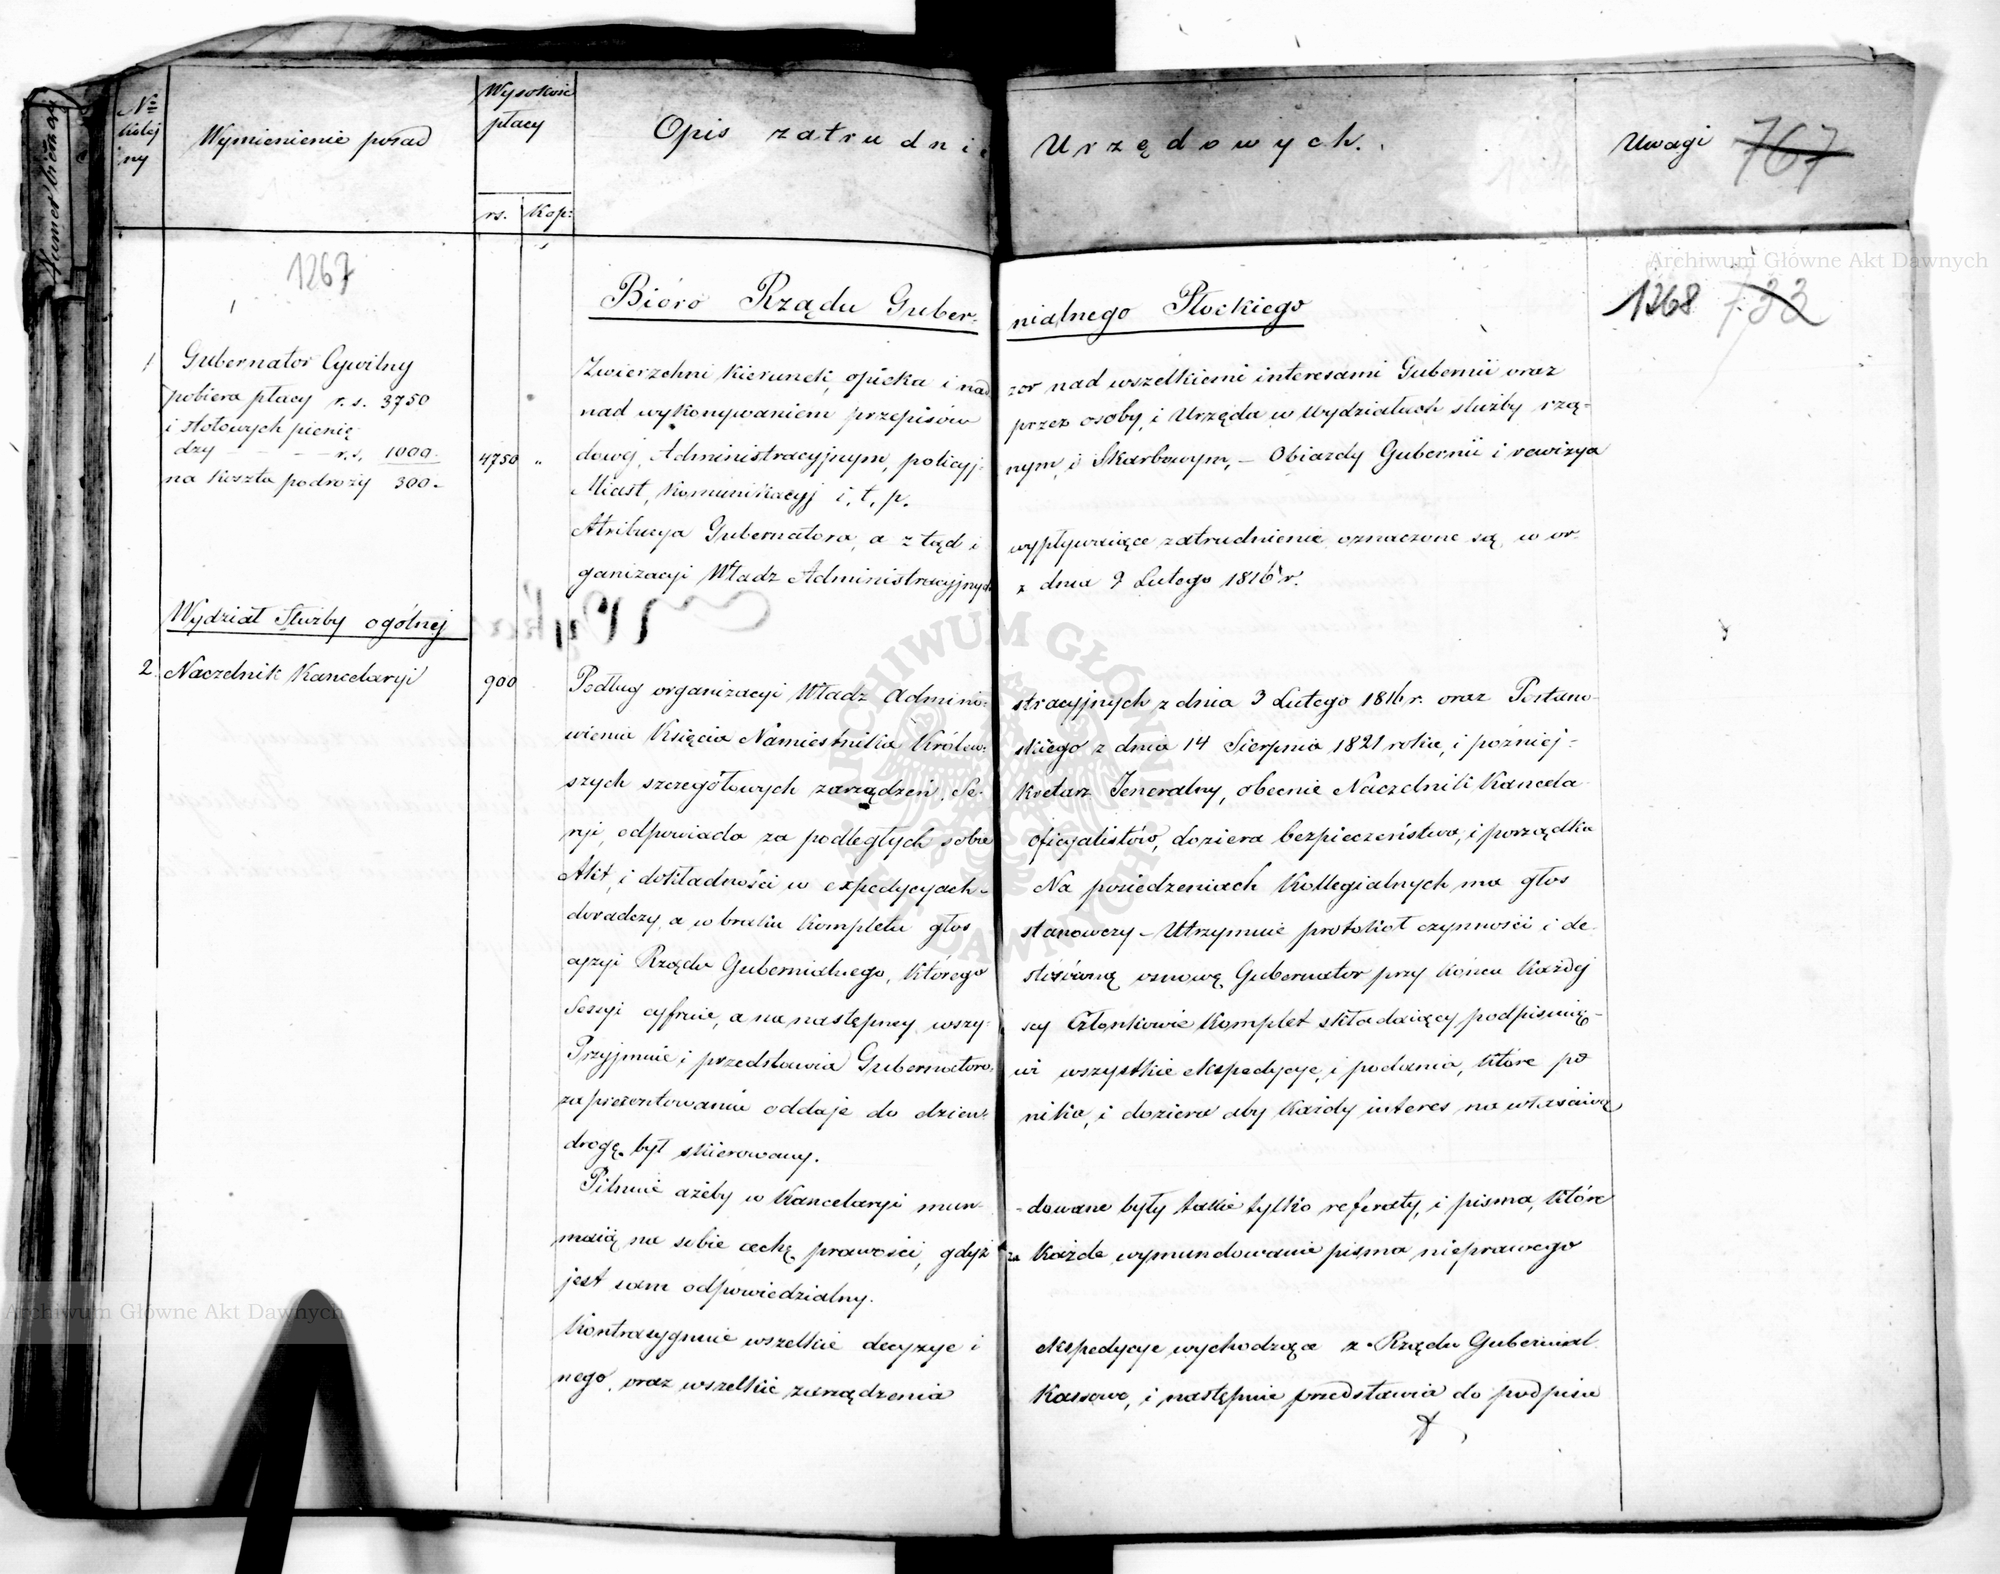 Numer bieżący
№ listej ny
Wymienienie posad
Wysokość płacy
rs.
Kop:
Opis zatrudnie Urzędowych.
Uwagi
767
1267
1268
733
Bióro Rządu Guber- nialnego Płockiego
1 Gubernator Cywilny
pobiera płacy r.s. 3750
i stołowych pienię
dzy - - - r.s. 1000.
na koszta podróży 300.
4750 "
Zwierzchni kierunek, opieka i nad zor nad wszelkiemi interesami Gubernii oraz
nad wykonywaniem przepisów przez osoby, i Urzęda w Wydziałach służby rzą-
dowej, Administracyjnym, policyj- nym, i Skarbowym, – Obiazdy Gubernii i rewizya
Miast, Komunikacyj i, t, p.
Atribucya Gubernatora, a ztąd i wypływaiące zatrudnienie oznaczone są w or-
ganizacyi Władz Administracyjnych z dnia 9 Lutego 1816 r.
Wydział Służby ogólnej
2 Naczelnik Kancelaryi
900
Podług organizacyi Władz Admini- stracyjnych z dnia 3 Lutego 1816 r. oraz Postano-
wienia Księcia Namiestnika Królew- skiego z dnia 14 Sierpnia 1821 roku, i poźniej-
szych szczegółowych zarządzeń, Se- kretarz Jeneralny, obecnie Naczelnik Kancela-
ryi, odpowiada za podległych sobie oficyalistów, doziera bezpieczeństwa, i porządku
Akt, i dokładności w expedycyach – Na posiedzeniach Kollegialnych ma głos
doradczy, a w braku Kompletu głos stanowczy – Utrzymuie protokół czynności i de-
cyzyi Rządu Gubernialnego, którego osnowę Gubernator przy końcu każdej
Sessyi cyfruie, a na następnej wszy- scy Członkowie Komplet składaiący podpisuią –
Przyjmuie i przedstawia Gubernatoro- wi wszystkie ekspedycye, i podania, które po
zaprezentowaniu oddaje do dzien- nika, i doziera aby każdy interes na właściwą
drogę był skierowany.
Pilnuie ażeby w Kancelaryi mun- dowane były takie tylko referaty, i pisma, które
maią na sobie cechę prawości, gdyż za każde wymundowanie pisma nieprawego
jest sam odpowiedzialny.
Kontrasygnuie wszelkie decyzye i ekspedycye wychodzące z Rządu Gubernial-
nego, oraz wszelkie zarządzenia Kassowe, i następnie przedstawia do podpisu
Archiwum Główne Akt Dawnych
Archiwum Główne Akt Dawnych
ARCHIWUM GŁÓWNE AKT DAWNYCH